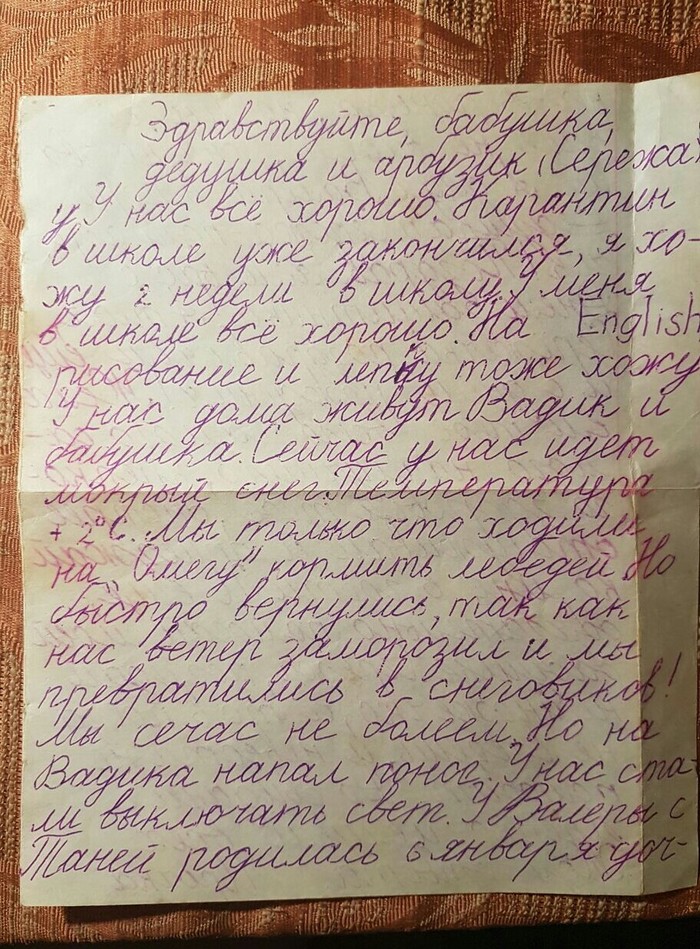 Здравствуйте, бабушка,
дедушка и арбузик (Сережа)
У нас всё хорошо. Карантин
в школе уже закончился, я хо-
жу 2 недели в школу. У меня
в школе всё хорошо. На English
рисование и лепку тоже хожу
У нас дома живут Вадик и
бабушка. Сейчас у нас идет
мокрый снег. Температура
+2°C. Мы только что ходили
на „Омегу" кормить лебедей Но
быстро вернулись, так как
нас ветер заморозил и мы
превратились в снеговиков!
Мы сечас не болеем. Но на
Вадика напал понос. У нас ста-
ли выключать свет. У Валеры с
Таней родилась 6 января доч-